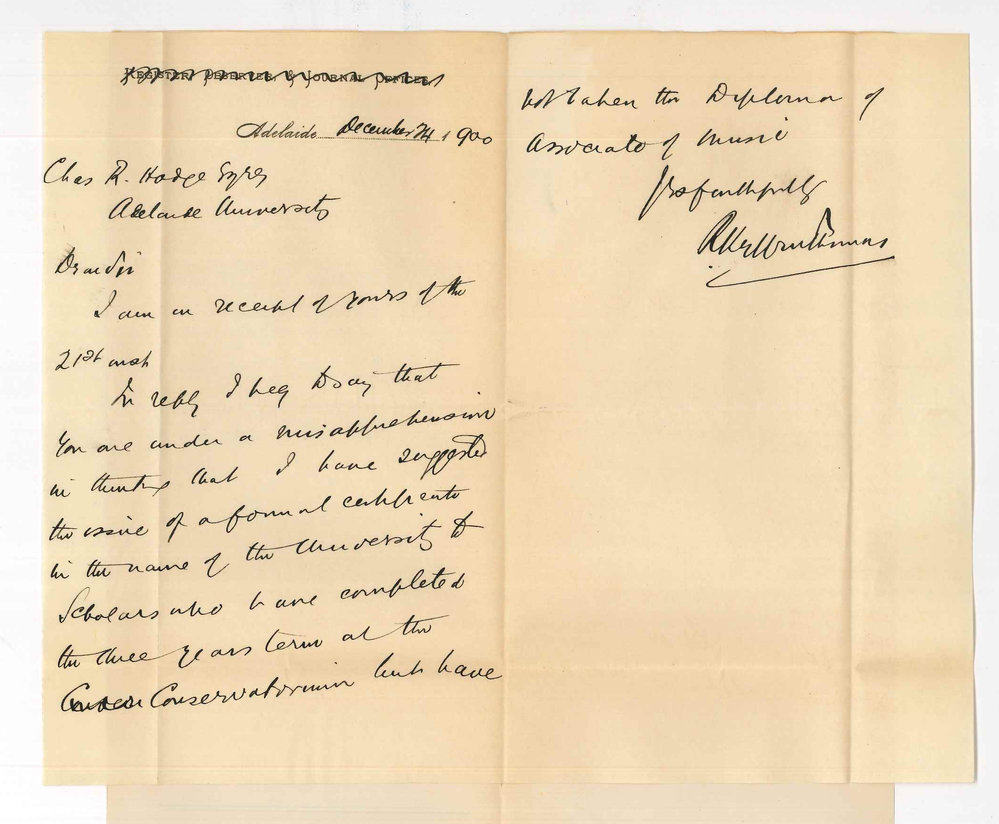 Register, Observer, & Journal Offices,
Adelaide December 24 1900
Chas R. Hodge Esqre
Adelaide University
Dear Sir
I am in receipt of yours of the
21st inst
In reply I beg to say that
you are under a misapprehension
in thinking that I have suggested
the issue of a formal certificate
in the name of the University to
Scholars who have completed
the three years term at the
Conservatorium but have
not taken the Diploma of
Associate of Music
Yrs faithfully
Thomas